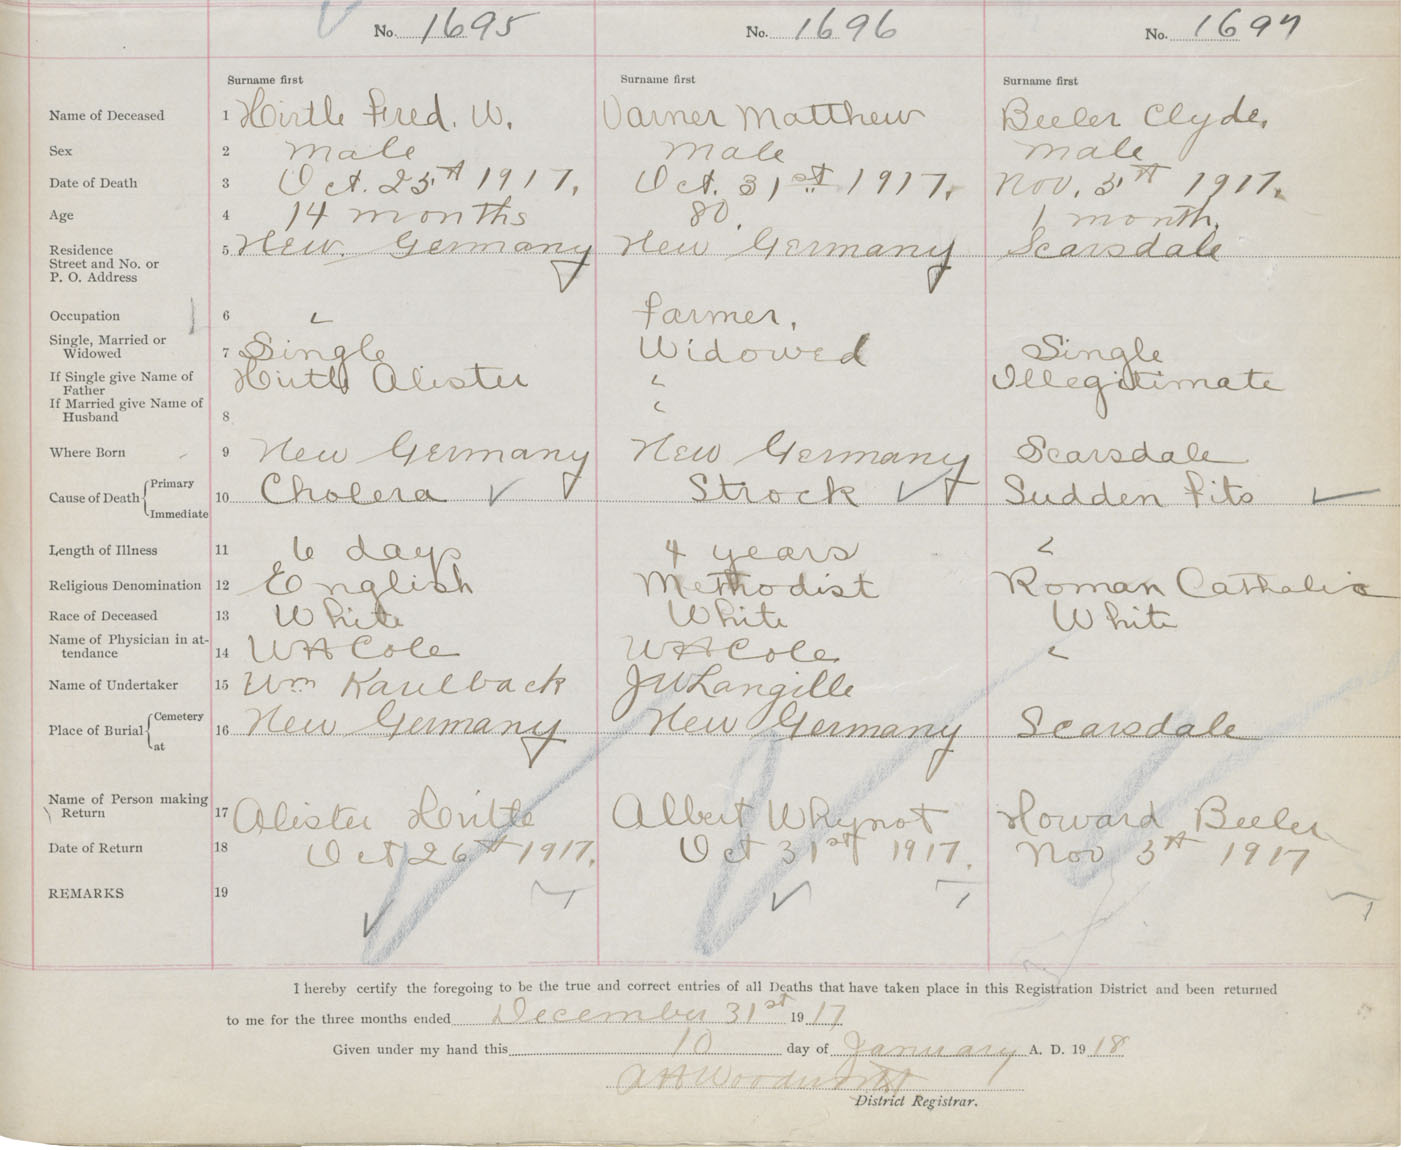 No. 1695 No. 1696 No. 1697
Surname first Surname first Surname first
Name of Deceased 1 Hirtle Fred. W. Varner Matthew Beeler Clyde.
Sex 2 Male Male Male
Date of Death 3 Oct. 25th 1917. Oct. 31st 1917. Nov. 3th 1917.
Age 4 14 months 80. 1 month.
Residence 5 New Germany New Germany Scarsdale
Street and No. or
P. O. Address
Occupation 6 " Farmer.
Single, Married or
Widowed 7 Single Widowed Single
If Single give Name of
Father Hirtle Alister " Illegitimate
If Married give Name of
Husband 8 "
Where Born 9 New Germany New Germany Scarsdale
Cause of Death { Primary
Immediate 10 Cholera Strock Sudden Fits
Length of Illness 11 6 days 4 years "
Religious Denomination 12 English Methodist Roman Catholic
Race of Deceased 13 White White White
Name of Physician in at-
tendance 14 W H Cole W H Cole "
Name of Undertaker 15 Wm Kaulback J W Langille
Place of Burial { Cemetery
at 16 New Germany New Germany Scarsdale
Name of Person making
Return 17 Alister Hirtle Albert Whynot Howard Beeler
Date of Return 18 Oct 26th 1917. Oct 31st 1917. Nov 3th 1917
REMARKS 19
I hereby certify the foregoing to be the true and correct entries of all Deaths that have taken place in this Registration District and been returned
to me for the three months ended December 31st 1917
Given under my hand this 10 day of January A. D. 1918
District Registrar.